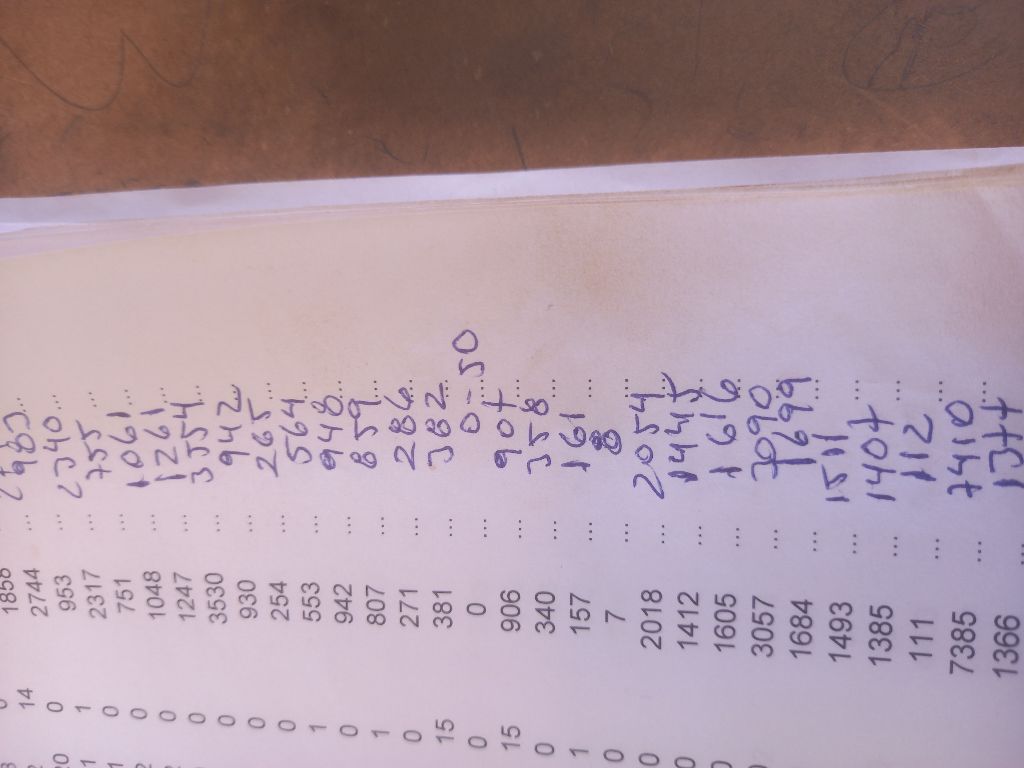 14 2744 ...
0 953 ...
1 2317 ... 2340 ...
0 751 ... 755 ...
0 1048 ... 1061 ...
0 1247 ... 1261 ...
0 3530 ... 3554 ...
0 930 ... 942 ...
0 254 ... 265 ...
0 553 ... 564 ...
1 942 ... 948 ...
0 807 ... 859 ...
1 271 ... 286 ...
0 381 ... 382 ...
15 0 ... 0-50 ...
0 906 ... 907 ...
15 340 ... 358 ...
0 157 ... 161 ...
1 7 ... 8 ...
0 2018 ... 2054 ...
0 1412 ... 1445 ...
0 1605 ... 1616 ...
3057 ... 3090 ...
1684 ... 1699 ...
1493 ... 1511 ...
1385 ... 1407 ...
111 ... 112 ...
7385 ... 7410 ...
1366 ... 1377 ...